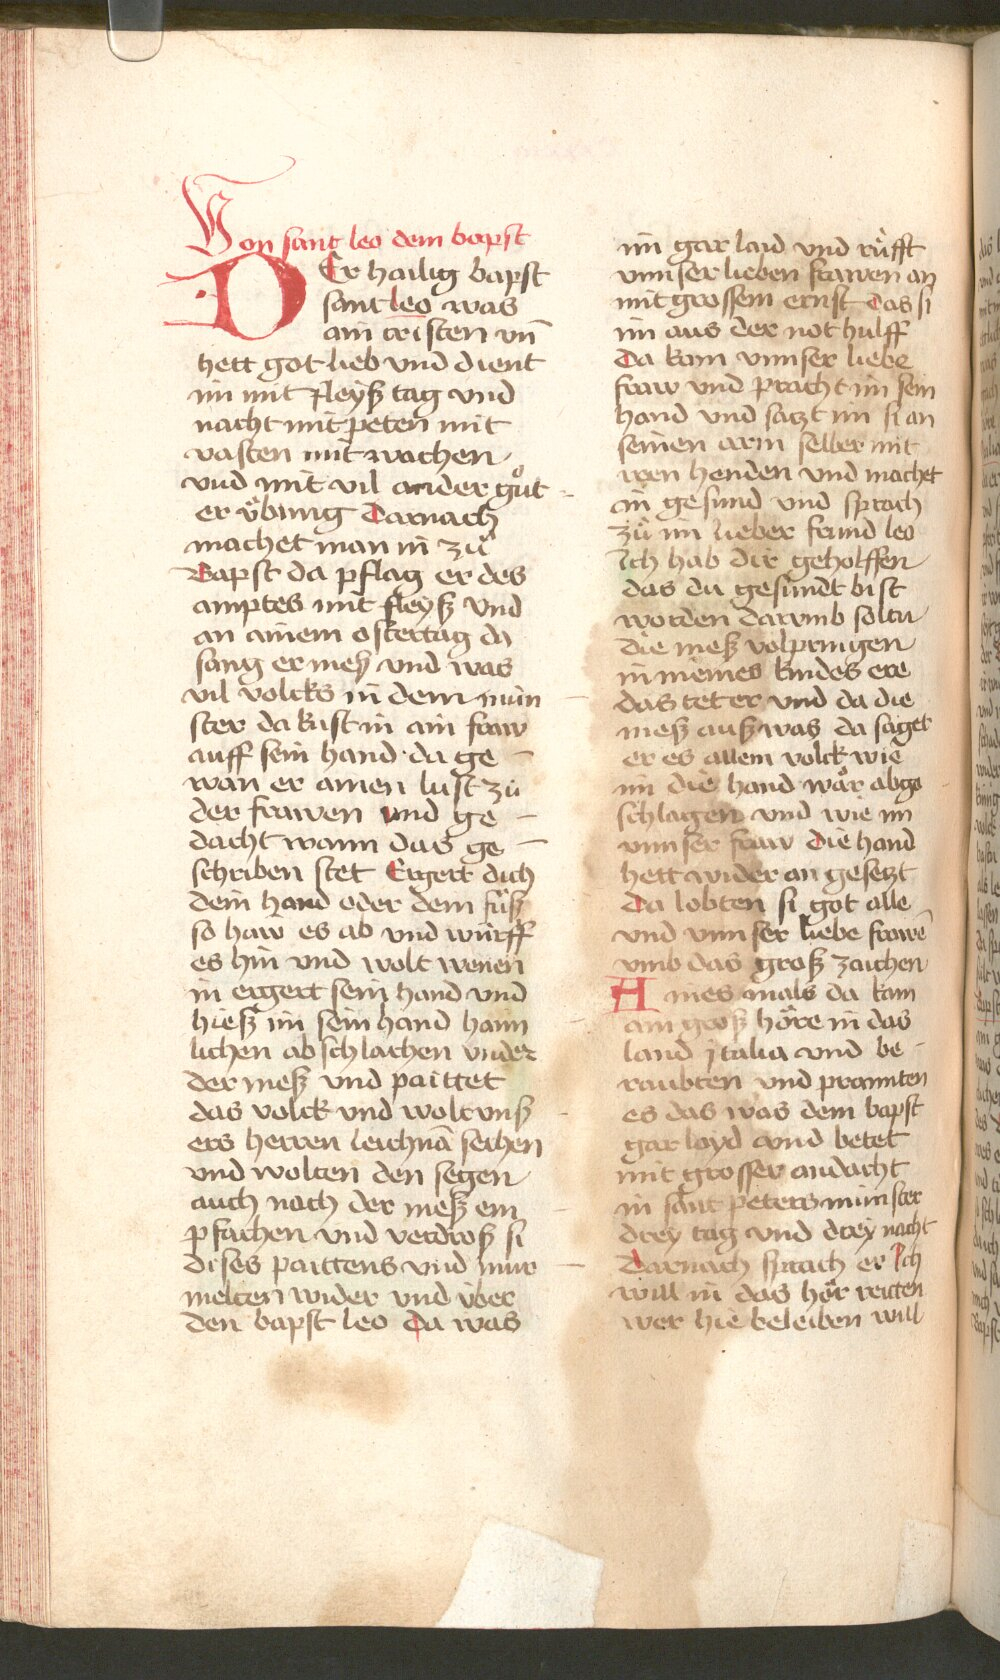 Von sant leo dem bapst
DEr hailig bapst
sant leo was
ain cristen vn̄
hett got lieb vnd dient
im mit fleyß tag vnd
nacht mit peten mit
vasten mit wachen
vnd mit vil ander guͦt
er vͤbung Darnach
machet man in zuͦ
Bapst da pflag er des
amptes mit fleyß vnd
an ainem ostertag da
sang er meß vnd was
vil volcks in dem mün
ster da kust in ain fraw
auff sein hand · da ge
wan er ainen lust zu
der frawen vnd ge
dacht wann das ge
schriben stet Ergert dich
dein hand oder dein fuͤß
so haw es ab vnd würff
es hin vnd wolt wenen
in ergert sein hand vnd
hieß im sein hand haim
lichen abschlachen vnder
der meß vnd paittet
das volck vnd wolt vnß
ers herren leichnā sechen
vnd wolten den segen
auch nach der meß em
pfachen vnd verdroß si
dises paittens vnd mur
melten wider vnd vͤber
den bapst leo Da was
im gar laid vnd ruͤfft
vnnser lieben frawen an
mit grossem ernst das si
im aus der not hulff
Da kam vnnser liebe
fraw vnd pracht im sein
hand vnd satzt im si an
seinen arm selber mit
iren henden vnd machet
in gesund vnd sprach
zuͦ im lieber freund leo
Ich hab dir geholffen
das du gesundt bist
worden darumb soltu
die meß volpringen
in meines kindes ere
das tet er vnd da die
meß auß was da saget
er es allem volck wie
im die hand waͤr abge
schlagen vnd wie im
vnnser fraw die hand
hett wider an gesetzt
Da lobten si got alle
vnd vnnser liebe frawē
vmb das groß zaichen
Ains mals da kam
ain groß hoͤre in das
land ytalia vnd be
raubten vnd prannten
es das was dem bapst
gar layd vnd betet
mit grosser andacht
in sant peters münster
drey tag vnd drey nacht
Darnach sprach er Ich
will in das hoͤr reitten
wer hie beleiben will